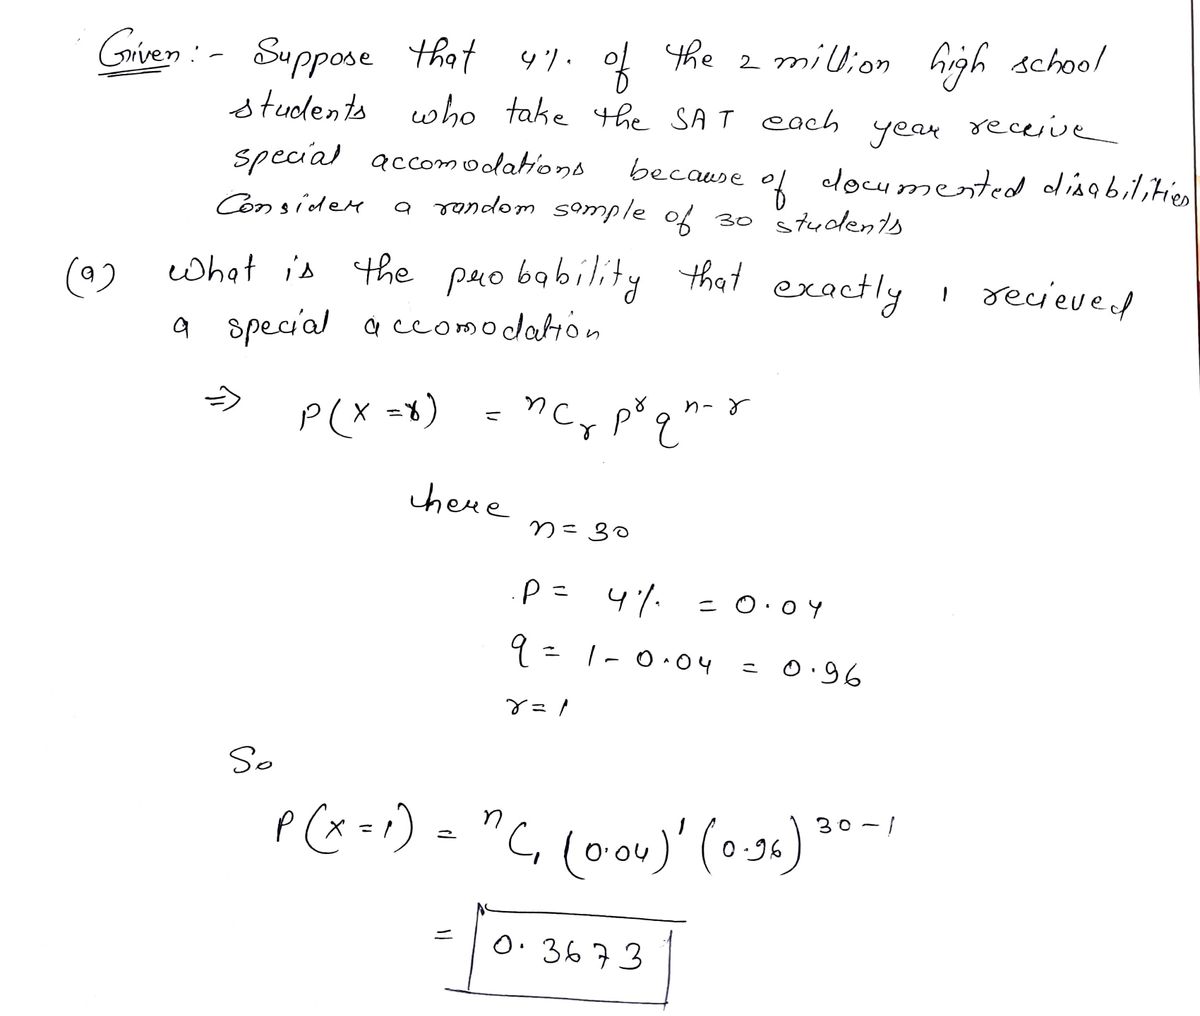 Given :- Suppose that 4%. of the 2 million high school
students who take the SAT each year receive
special accomodations because of documented disabilities
Consider a random sample of 30 students
(a) what is the probability that exactly 1 recieved
a special accomodation
⇒ P(X = r) = ⁿCᵣ pʳ qⁿ⁻ʳ
here
n = 30
p = 4% = 0.04
q = 1 - 0.04 = 0.96
r = 1
So
P(X = 1) = ⁿC₁ (0.04)¹ (0.96)³⁰⁻¹
= 0.3673